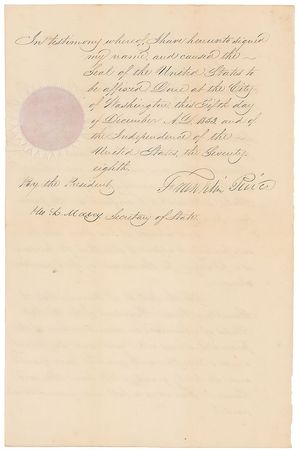 In testimony whereof, I have hereunto signed
my name, and caused the
Seal of the United States to
be affixed Done at the City
of Washington this Fifth day
of December A.D. 1853 and of
the Independence of the
United States, the Seventy
eighth.
By the President, Franklin Pierce
Wm L. Marcy Secretary of State.